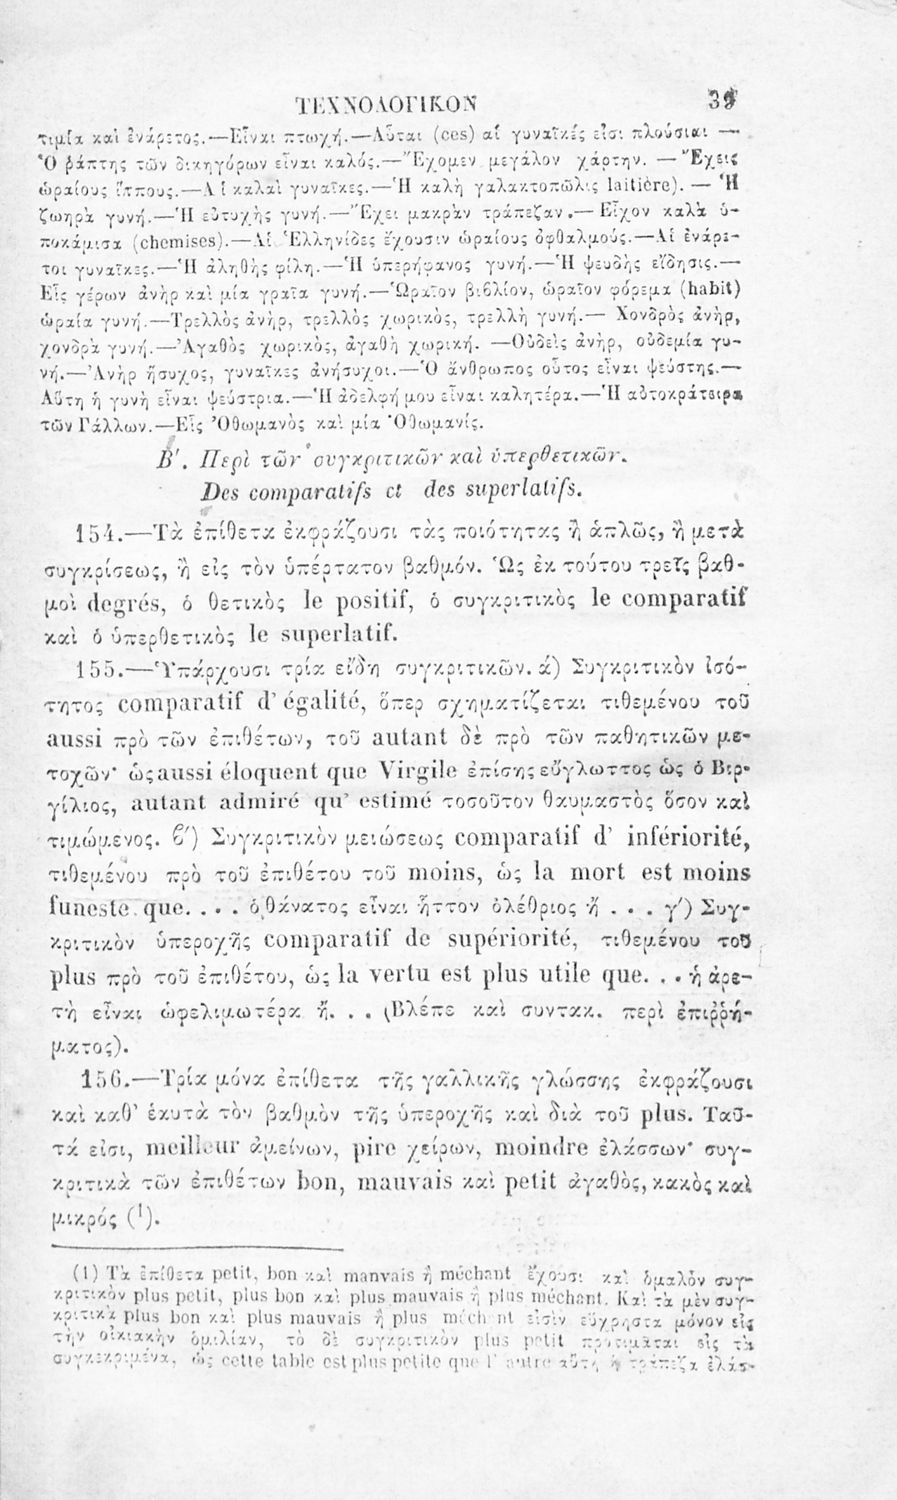 ΤΕΧΝΟΛΟΓΙΚΟΝ 39
τιμία καὶ ἐνάρετος.—Εἶναι πτωχή.—Αὗται (ces) αἱ γυναῖκές εἰσι πλούσιαι —
Ὁ ῥάπτης τῶν δικηγόρων εἶναι καλός.—Ἔχομεν μεγάλον χάρτην. —Ἔχεις
ὡραίους ἵππους.—Αἱ καλαὶ γυναῖκες.—Ἡ καλὴ γαλακτοπῶλις laitière). — Ἡ
ζωηρὰ γυνή.—Ἡ εὐτυχὴς γυνή.—Ἔχει μακρὰν τράπεζαν.—Εἶχον καλὰ ὑ-
ποκάμισα (chemises).—Αἱ Ἑλληνίδες ἔχουσιν ὡραίους ὀφθαλμούς.—Αἱ ἐνάρε-
τοι γυναῖκες.—Ἡ ἀληθὴς φίλη.—Ἡ ὑπερήφανος γυνή.—Ἡ ψευδὴς εἴδησις.—
Εἷς γέρων ἀνὴρ καὶ μία γραῖα γυνή.—Ὡραῖον βιβλίον, ὡραῖον φόρεμα (habit)
ὡραία γυνή.—Τρελλὸς ἀνὴρ, τρελλὸς χωρικὸς, τρελλὴ γυνή.— Χονδρὸς ἀνὴρ,
χονδρὰ γυνή.—Ἀγαθὸς χωρικὸς, ἀγαθὴ χωρική. —Οὐδεὶς ἀνὴρ, οὐδεμία γυ-
νή.—Ἀνὴρ ἥσυχος, γυναῖκες ἀνήσυχοι.—Ὁ ἄνθρωπος οὗτος εἶναι ψεύστης.—
Αὕτη ἡ γυνὴ εἶναι ψεύστρια.—Ἡ ἀδελφή μου εἶναι καλητέρα.—Ἡ αὐτοκράτειρα
τῶν Γάλλων.—Εἷς Ὀθωμανὸς καὶ μία Ὀθωμανίς.
Β'. Περὶ τῶν συγκριτικῶν καὶ ὑπερθετικῶν.
Des comparatifs et des superlatifs.
154.—Τὰ ἐπίθετα ἐκφράζουσι τὰς ποιότητας ἢ ἁπλῶς, ἢ μετὰ
συγκρίσεως, ἢ εἰς τὸν ὑπέρτατον βαθμόν. Ὡς ἐκ τούτου τρεῖς βαθ-
μοὶ degrés, ὁ θετικὸς le positif, ὁ συγκριτικὸς le comparatif
καὶ ὁ ὑπερθετικὸς le superlatif.
155.—Ὑπάρχουσι τρία εἴδη συγκριτικῶν. ά) Συγκριτικὸν ἰσό-
τητος comparatif d' égalité, ὅπερ σχηματίζεται τιθεμένου τοῦ
aussi πρὸ τῶν ἐπιθέτων, τοῦ autant δὲ πρὸ τῶν παθητικῶν με-
τοχῶν· ὡς aussi éloquent que Virgile ἐπίσης εὔγλωττος ὡς ὁ Βιρ-
γίλιος, autant admiré qu' estimé τοσοῦτον θαυμαστὸς ὅσον καὶ
τιμώμενος. β') Συγκριτικὸν μειώσεως comparatif d' infériorité,
τιθεμένου πρὸ τοῦ ἐπιθέτου τοῦ moins, ὡς la mort est moins
funeste que.... ὁ θάνατος εἶναι ἧττον ὀλέθριος ἤ ... γ') Συγ-
κριτικὸν ὑπεροχῆς comparatif de supériorité, τιθεμένου τοῦ
plus πρὸ τοῦ ἐπιθέτου, ὡς la vertu est plus utile que... ἡ ἀρε-
τὴ εἶναι ὠφελιμωτέρα ἤ... (Βλέπε καὶ συντακ. περὶ ἐπιῤῥή-
ματος).
156.—Τρία μόνα ἐπίθετα τῆς γαλλικῆς γλώσσης ἐκφράζουσι
καὶ καθ' ἑαυτὰ τὸν βαθμὸν τῆς ὑπεροχῆς καὶ διὰ τοῦ plus. Ταῦ-
τά εἰσι, meilleur ἀμείνων, pire χείρων, moindre ἐλάσσων· συγ-
κριτικὰ τῶν ἐπιθέτων bon, mauvais καὶ petit ἀγαθὸς, κακὸς καὶ
μικρός (1).
(1) Τὰ ἐπίθετα petit, bon καὶ manvais ἢ méchant ἔχουσι καὶ ὁμαλὸν συγ-
κριτικὸν plus petit, plus bon καὶ plus mauvais ἢ plus méchant. Καὶ τὰ μὲν συγ-
κριτικὰ plus bon καὶ plus mauvais ἢ plus méchant εἰσὶν εὔχρηστα μόνον εἰς
τὴν οἰκιακὴν ὁμιλίαν, τὸ δὲ συγκριτικὸν plus petit προτιμᾶται εἰς τὰ
συγκεκριμένα, ὡς cette table est plus petite que l' autre αὕτη ἡ τράπεζα ἐλάσ-